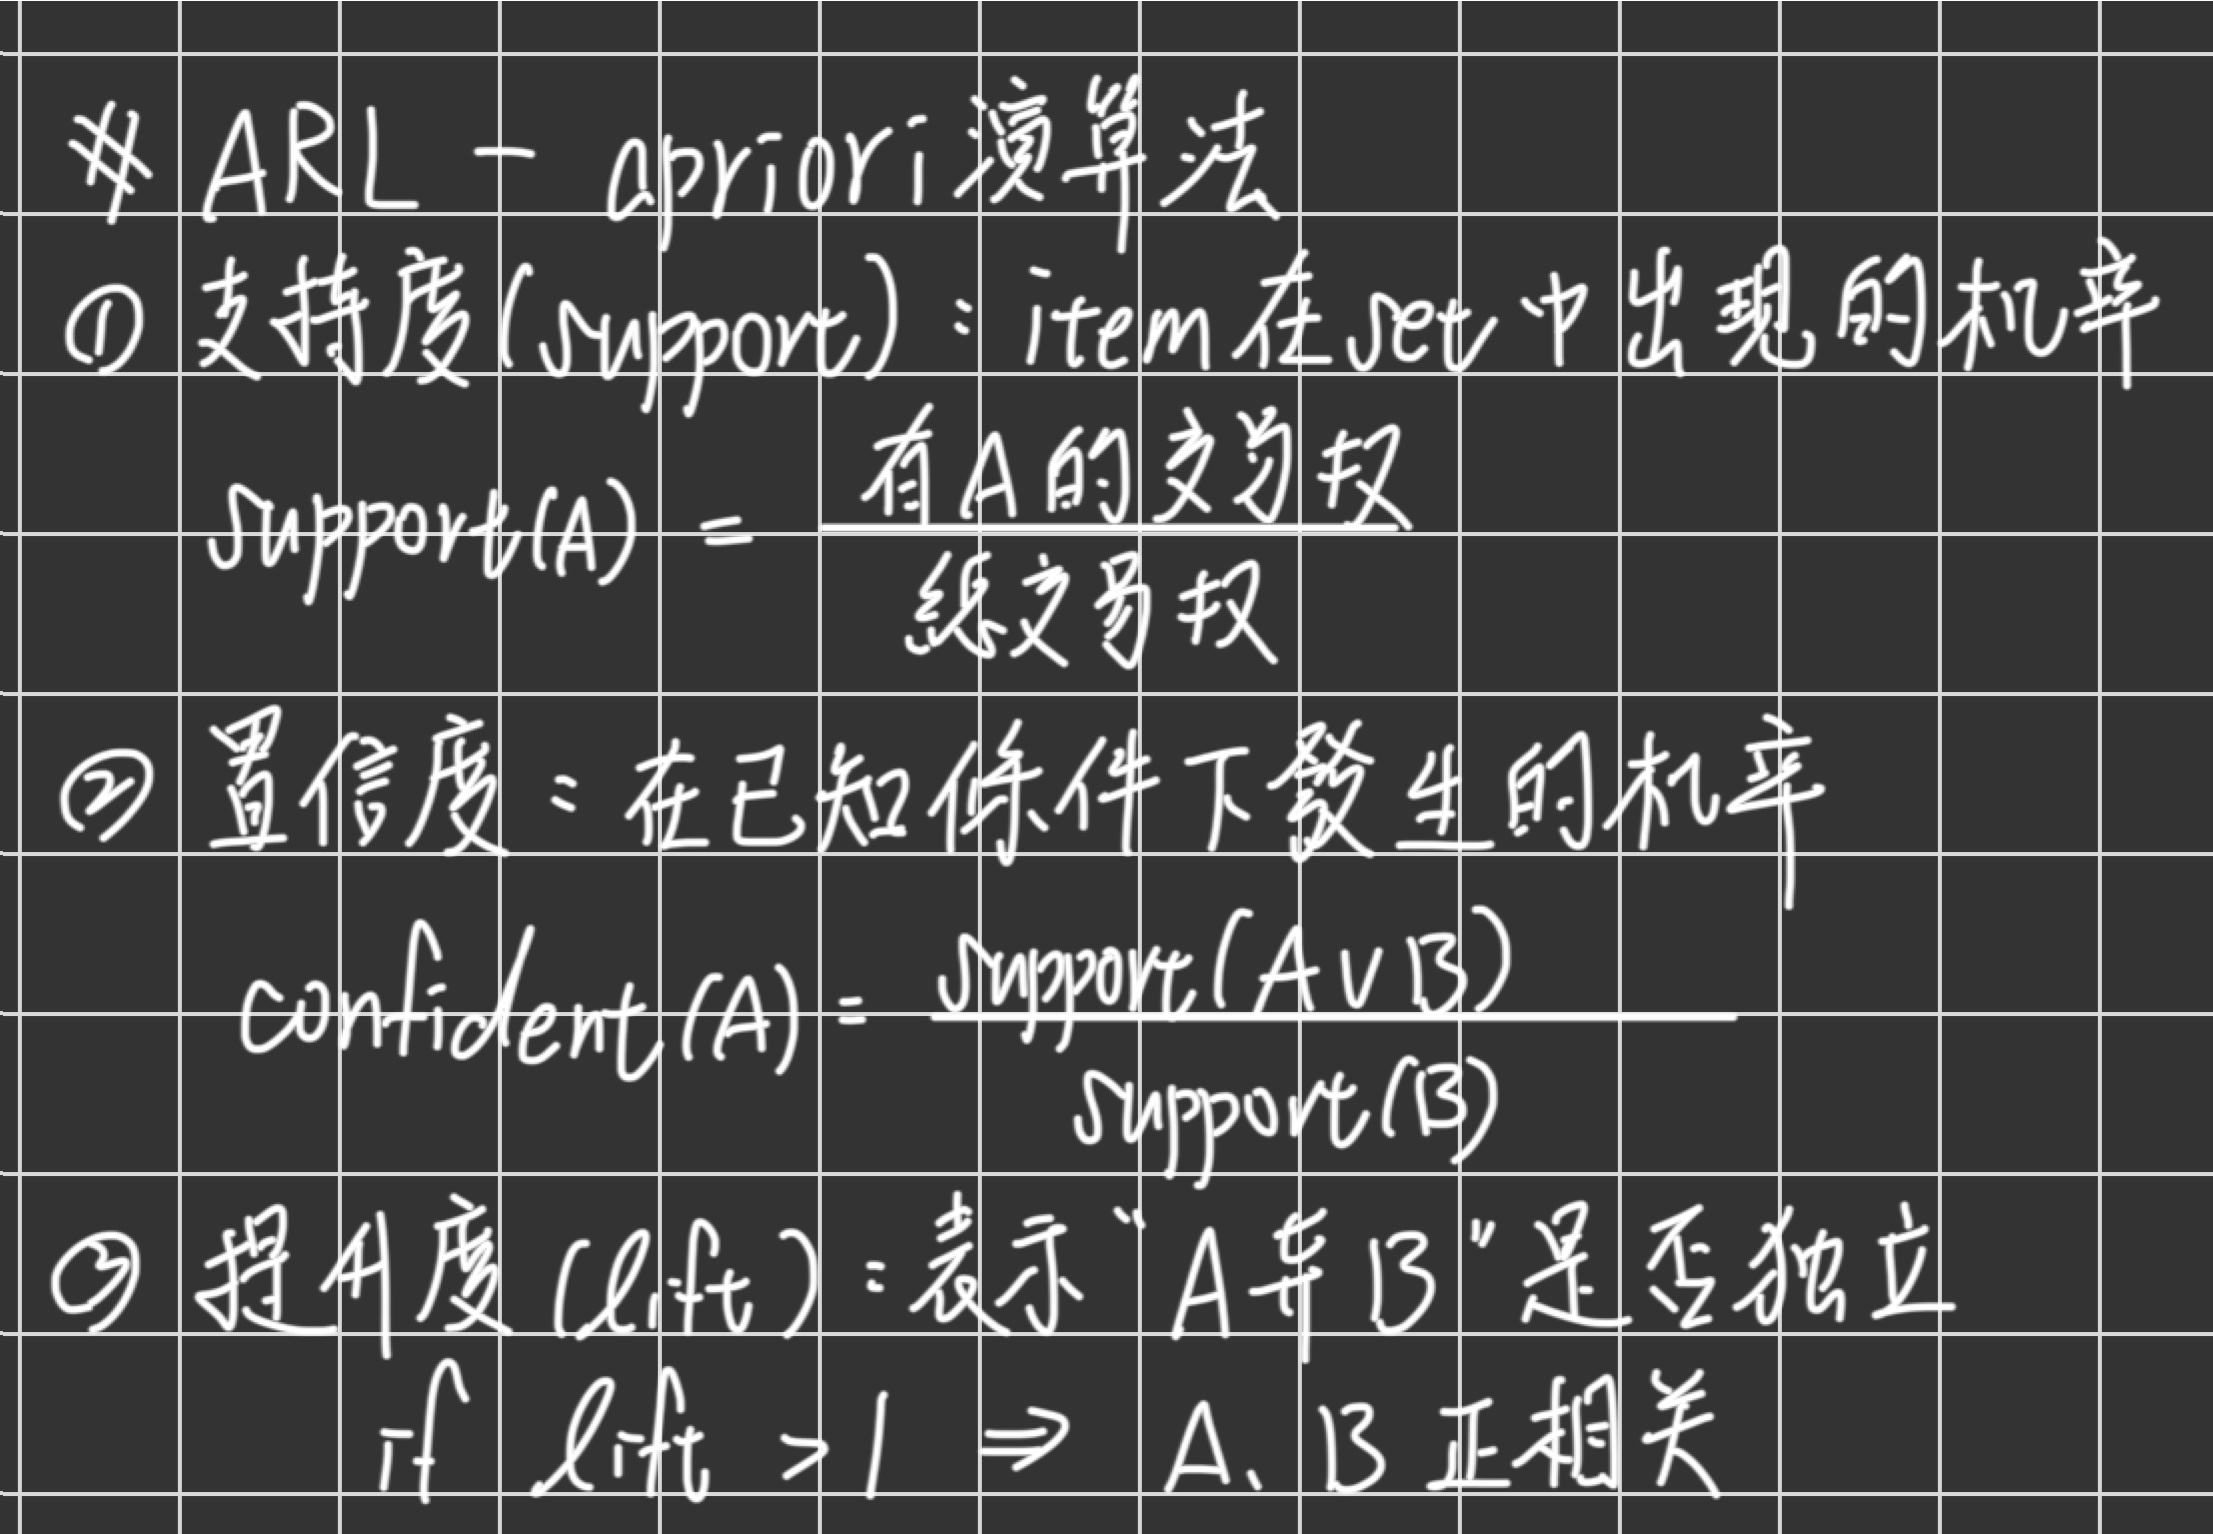 # ARL - apriori演算法
① 支持度(support)：item在set中出現的机率
support(A) = 有A的交易权
総交易权
② 置信度：在已知條件下發生的机率
confident(A) = support(A∪B)
support(B)
③ 提升度(lift)：表示"A弃B"是否独立
if lift >1 ⇒ A、B正相关